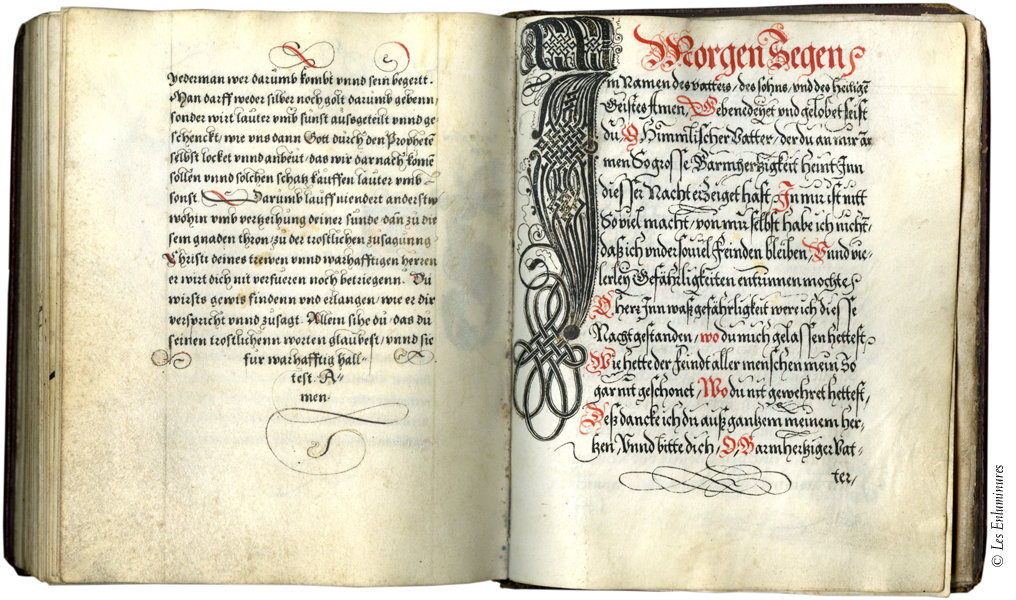 yederman wer darumb kombt vnnd sein begertt.
Man darff weder silber noch golt darumb gebenn,
sonder wirt lauter vmb sunst ausgeteilt vnnd ge
schenckt, wie vns dann Gott durch den Prophetē
selbst locket vnnd anbeut, das wir darnach komē
sollen vnnd solchen schatz kauffen lauter vmb
sonst. Darumb lauff niendert anderstw
wohin vmb vertzeihung deiner sunde, dan zu die
sem gnaden thron, zu der trostlichen zusagunng
Christi deines trewen vnnd warhafftigen herren
er wirt dich nit verfueren noch betriegenn. Du
wirsts gewis findenn vnd erlangen, wie er dir
verspricht vnnd zusagt. Allein sihe du, das du
seinen trostlichenn worten glaubest, vnnd sie
fur warhafftig hall-
test. A-
men.
Morgen Segen
Im Namen des vatters, des sohns, vnd des heiligē
Geistes Amen, Gebenedeyet vnd gelobet seist
du O Himmlischer Vatter, der du an mir ar
men So grosse Barmhertzigkeit heint Inn
diesser Nacht ertzeiget hast, In mir ist nitt
So viel macht, von mir selbst habe ich nicht,
daß ich vnder souiel Feinden bleiben, Vnnd vie-
lerley Gefährligkeiten entrinnen mochte,
O herr Inn waß gefährligkeit were ich diesse
Nacht gestanden, wo du mich gelassen hettest,
Wie hette der Feindt aller menschen mein So
gar nit geschonet, Wo du nit gewehret hettest,
Deß dancke ich du auß gantzem meinem her-
tzen, Vnnd bitte dich, O, Barmhertziger Vat-
ter,
© Les Enluminures